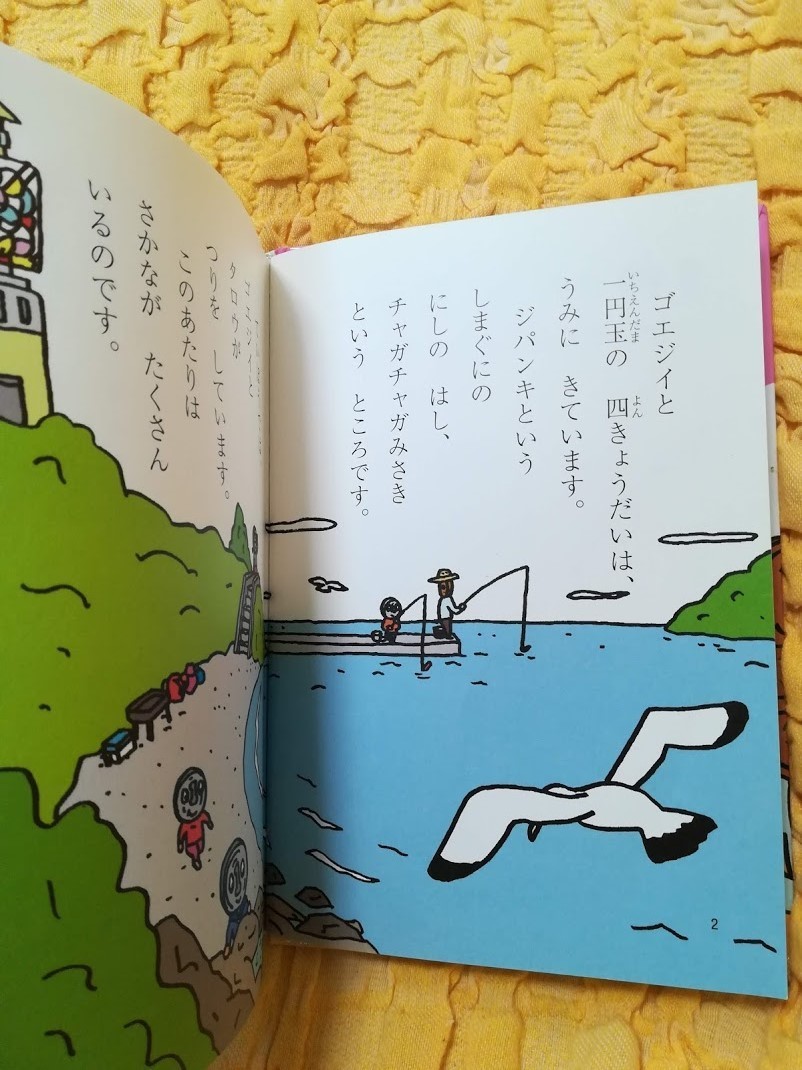 ゴエジイと
いちえんだま よん
一円玉の 四きょうだいは、
うみに きています。
ジパンキという
しまぐにの
にしの はし、
チャガチャガみさき
という ところです。
2
ゴエジイと
タロウが
つりを しています。
このあたりは
さかなが たくさん
いるのです。